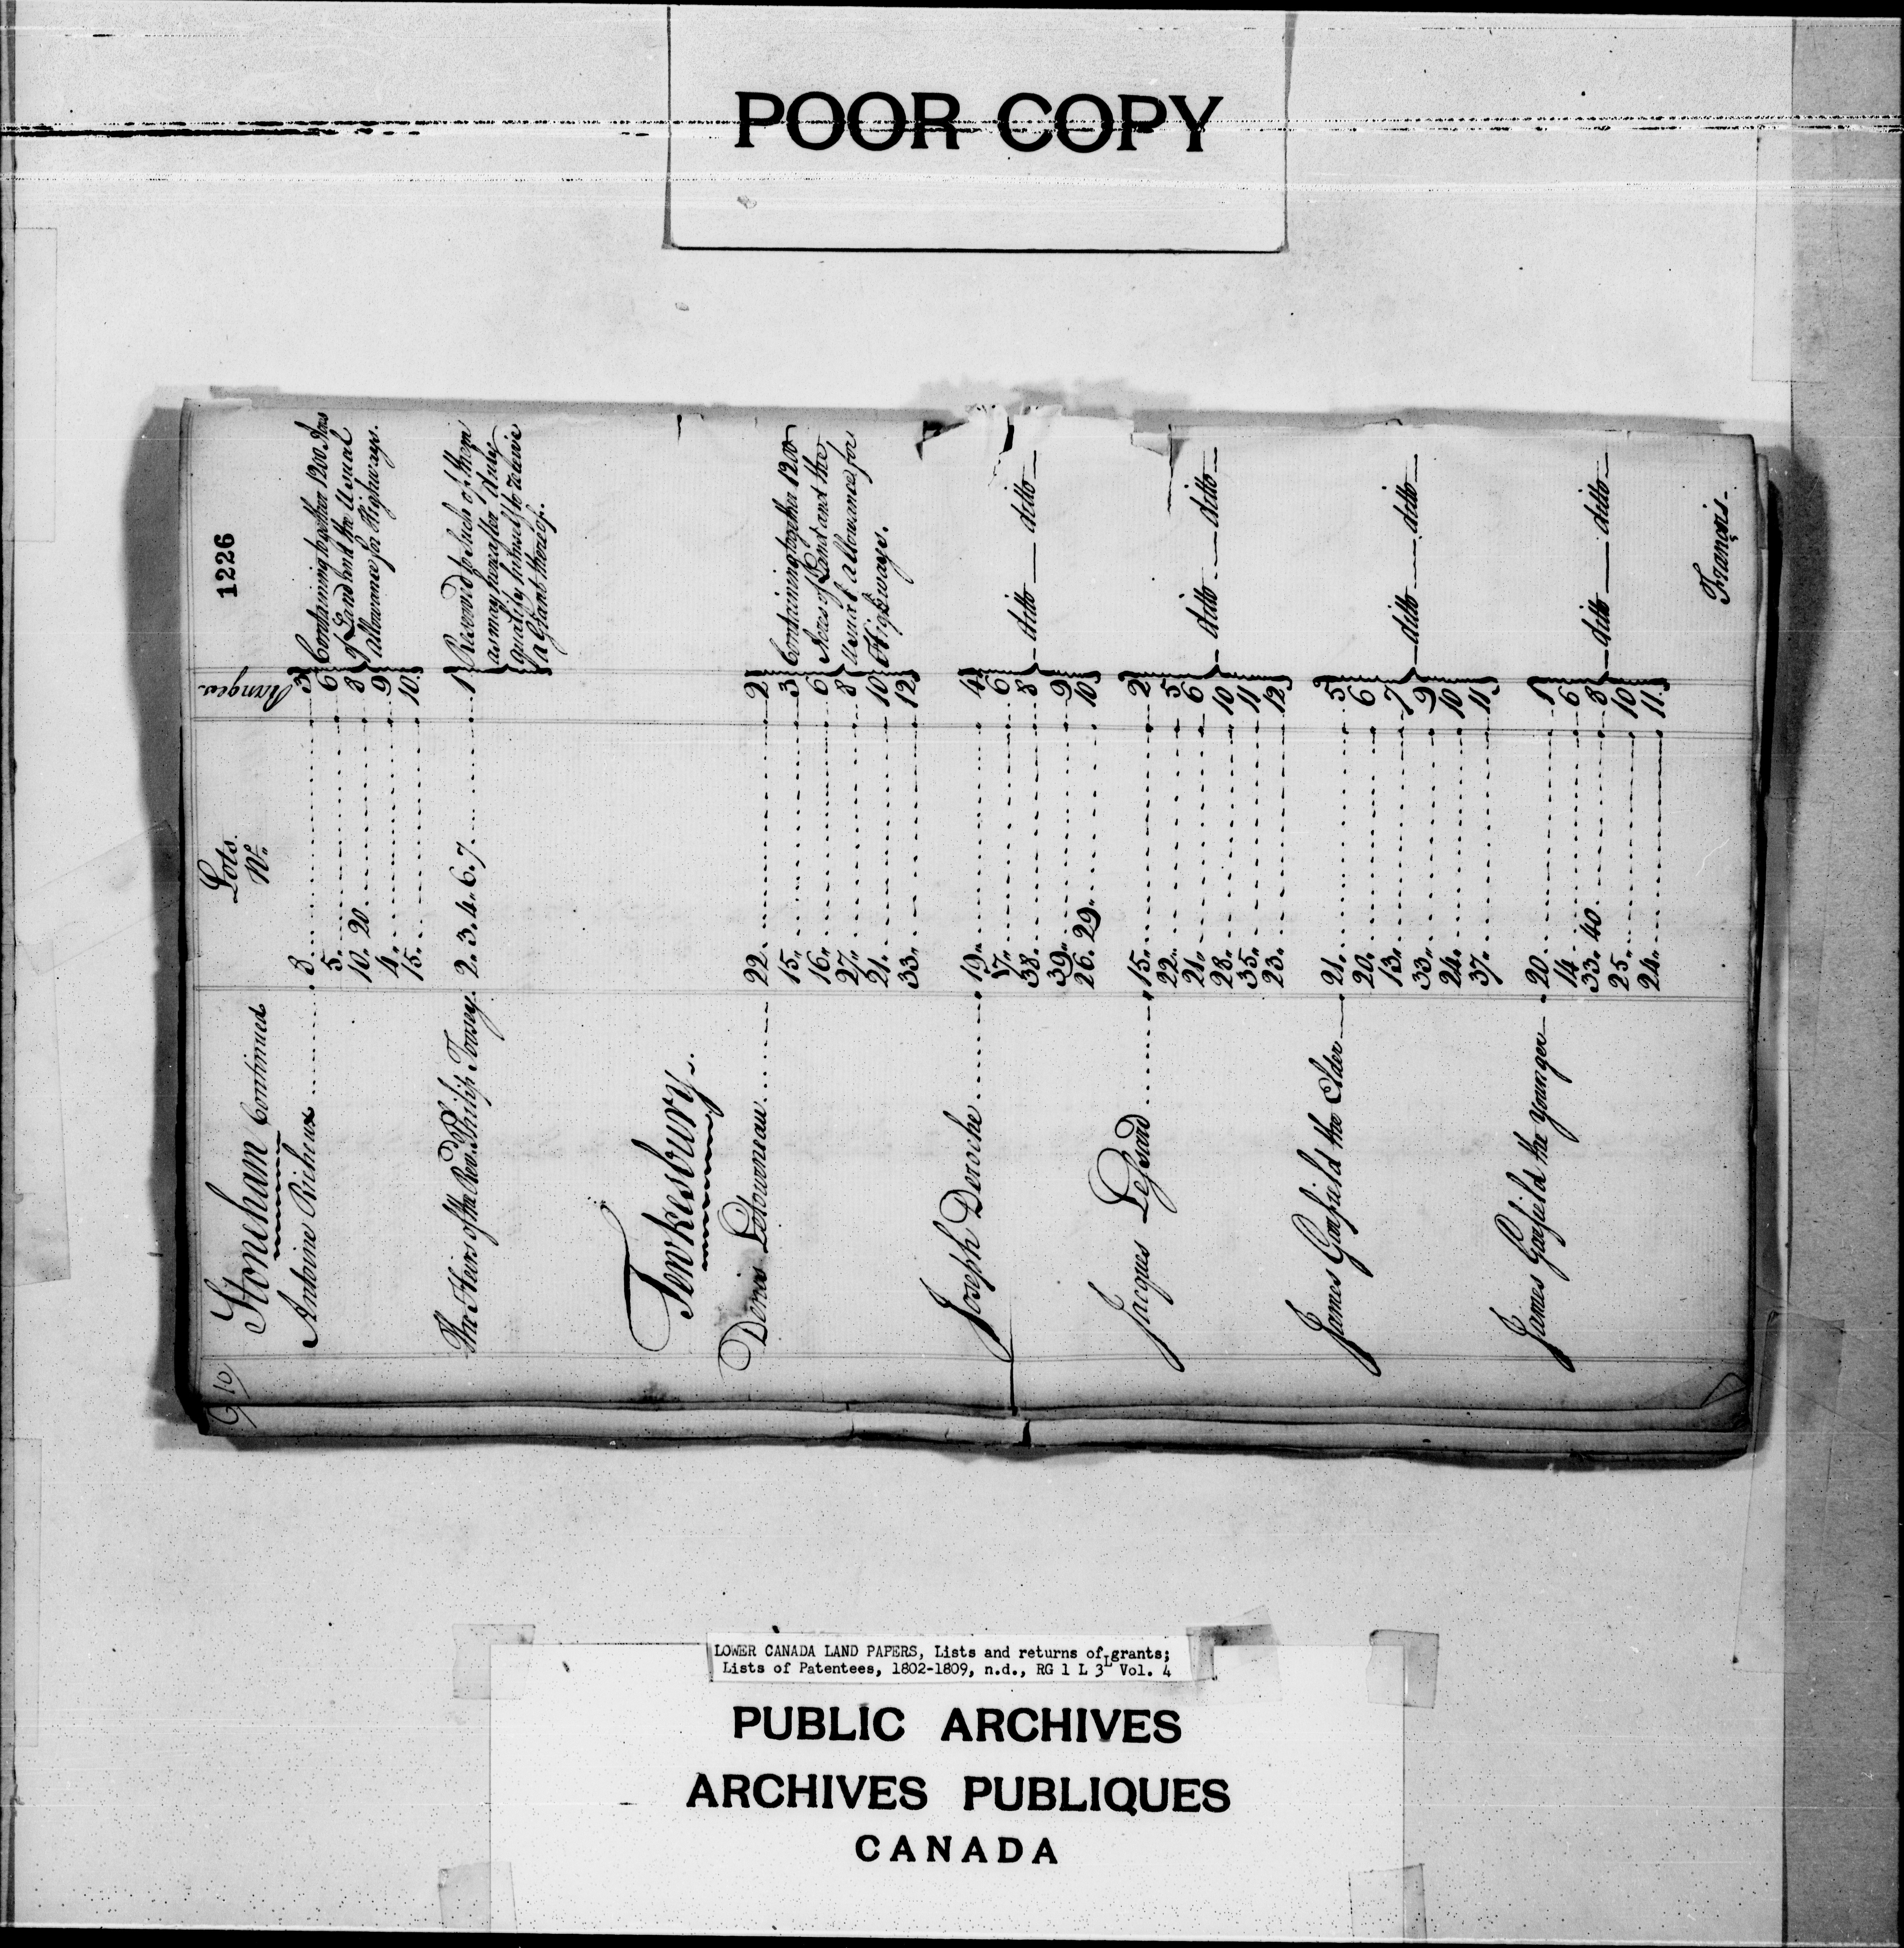 POOR COPY
1226
10
Lots
Nº.
Ranges.
Stoneham Continued
Antoine Richeux ........ 3. ........ 3
5. ........ 6
10. 20. ........ 8
4. ........ 9
15. ........ 10
Containing together 1200 Acres
of Land and the Usual
allowance for Highways.
The Heirs of the Revd. Philip Tousey. 2. 3. 4. 6. 7. ........ 1
Reserved to Such of them
as may hereafter duly
qualify himself to receive
a Grant thereof.
Tewkesbury.
Denis Letourneau ........ 22. ........ 2
15. ........ 3
16. ........ 6
27. ........ 8
21. ........ 10
33. ........ 12
Containing together 1200
Acres of Land and the
Usual allowance for
Highways.
Joseph Deroche ........ 19. ........ 4
17. ........ 6
38. ........ 8
39. ........ 9
26. 29. ........ 10
— ditto — ditto —
Jacques Lessard ........ 15. ........ 2
22. ........ 5
21. ........ 6
28. ........ 10
35. ........ 11
23. ........ 12
— ditto. — ditto —
James Garfield the Elder — 21. ........ 5
20. ........ 6
13. ........ 7
33. ........ 9
24. ........ 10
37. ........ 11
— ditto — ditto —
James Garfield the Younger — 20. ........ 1
14. ........ 6
33. 40. ........ 8
25. ........ 10
24. ........ 11
— ditto — ditto —
Francis -
LOWER CANADA LAND PAPERS, Lists and returns of grants;
Lists of Patentees, 1802-1809, n.d., RG 1 L 3L Vol. 4
PUBLIC ARCHIVES
ARCHIVES PUBLIQUES
CANADA